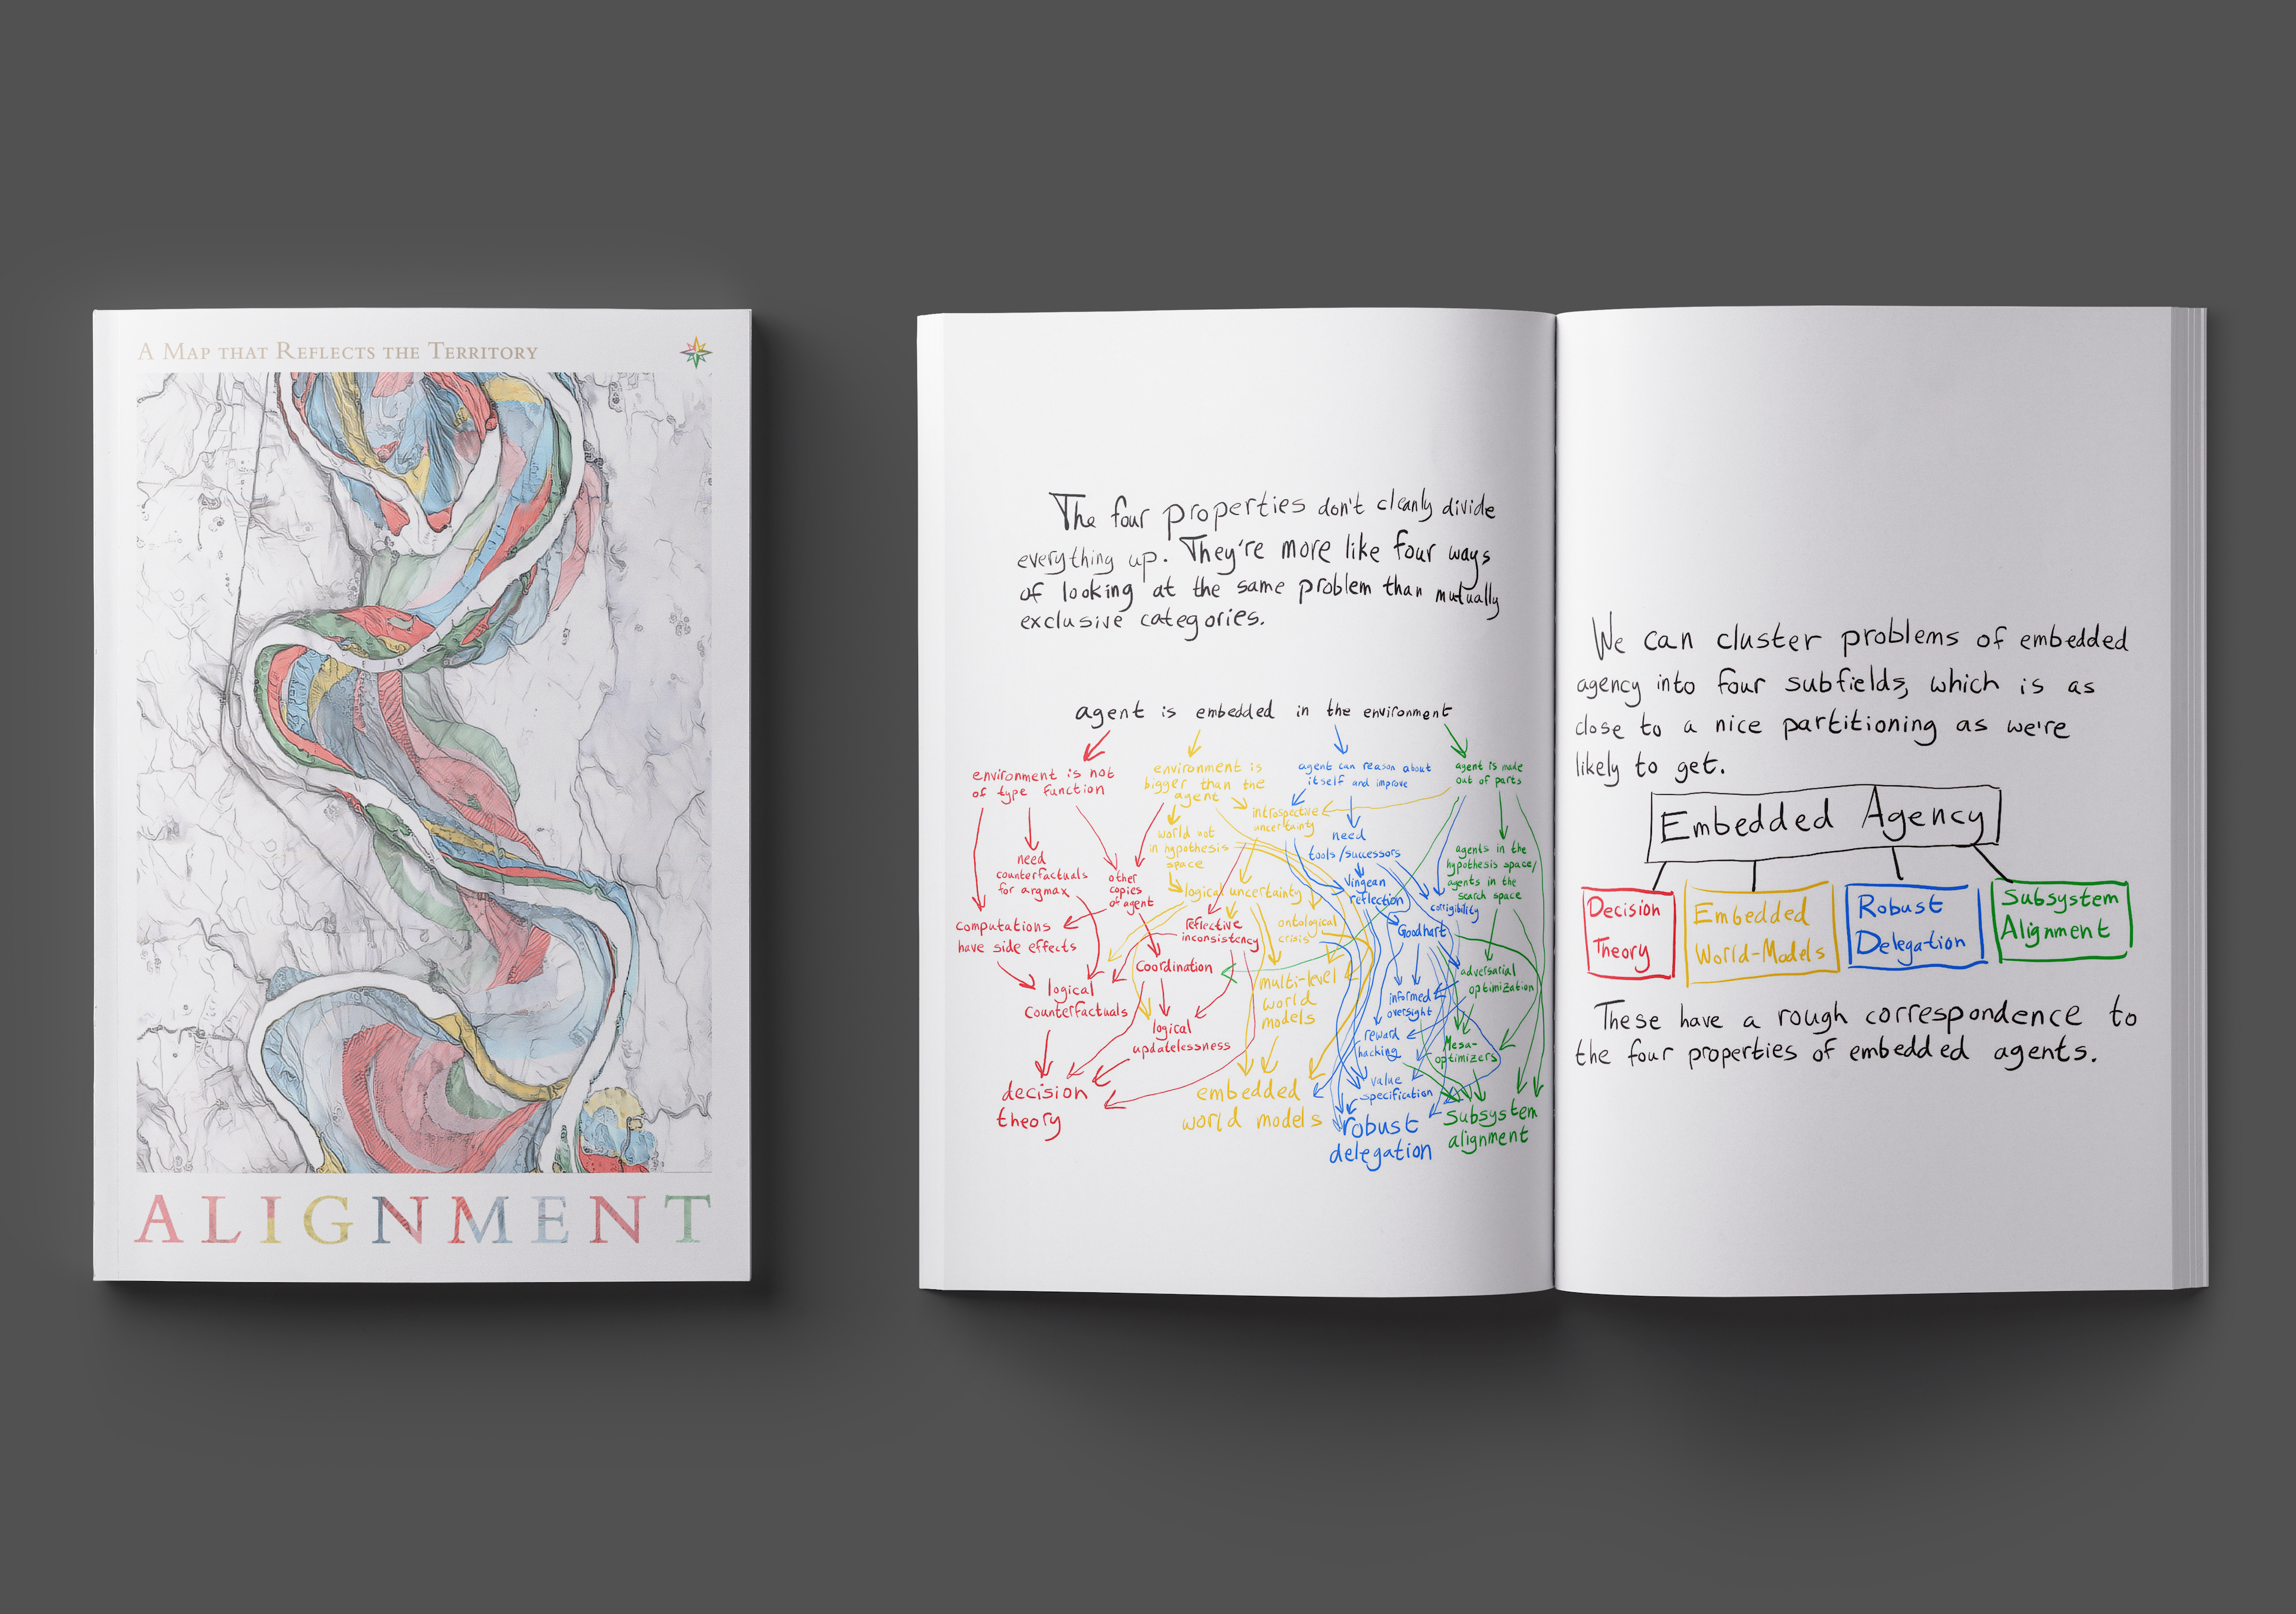 A Map that Reflects the Territory
ALIGNMENT
The four properties don't cleanly divide
everything up. They're more like four ways
of looking at the same problem than mutually
exclusive categories.
agent is embedded in the environment
environment is not
of type function
environment is
bigger than the
agent
agent can reason about
itself and improve
agent is made
out of parts
introspective
uncertainty
world not
in hypothesis
space
need
tools/successors
need
counterfactuals
for argmax
other
copies
of agent
agents in the
hypothesis space/
agents in the
search space
logical uncertainty
Vingean
reflection
corrigibility
computations
have side effects
reflective
inconsistency
ontological
crisis
Goodhart
Coordination
multi-level
world
models
adversarial
optimization
logical
counterfactuals
informed
oversight
logical
updatelessness
reward
hacking
Mesa-
optimizers
value
specification
decision
theory
embedded
world models
robust
delegation
Subsystem
alignment
We can cluster problems of embedded
agency into four subfields, which is as
close to a nice partitioning as we're
likely to get.
Embedded Agency
Decision
Theory
Embedded
World-Models
Robust
Delegation
Subsystem
Alignment
These have a rough correspondence to
the four properties of embedded agents.